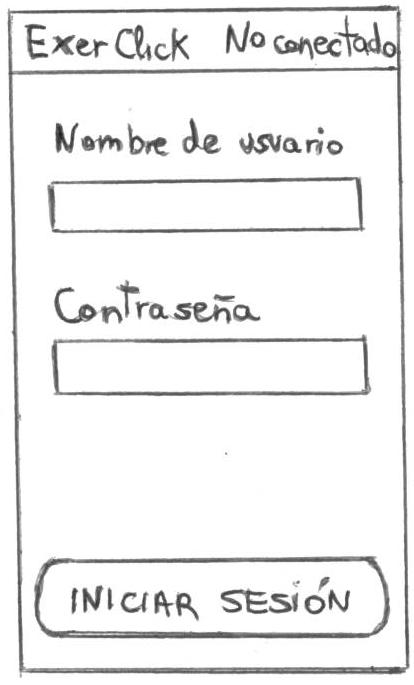 ExerClick No conectado
Nombre de usuario
Contraseña
INICIAR SESIÓN